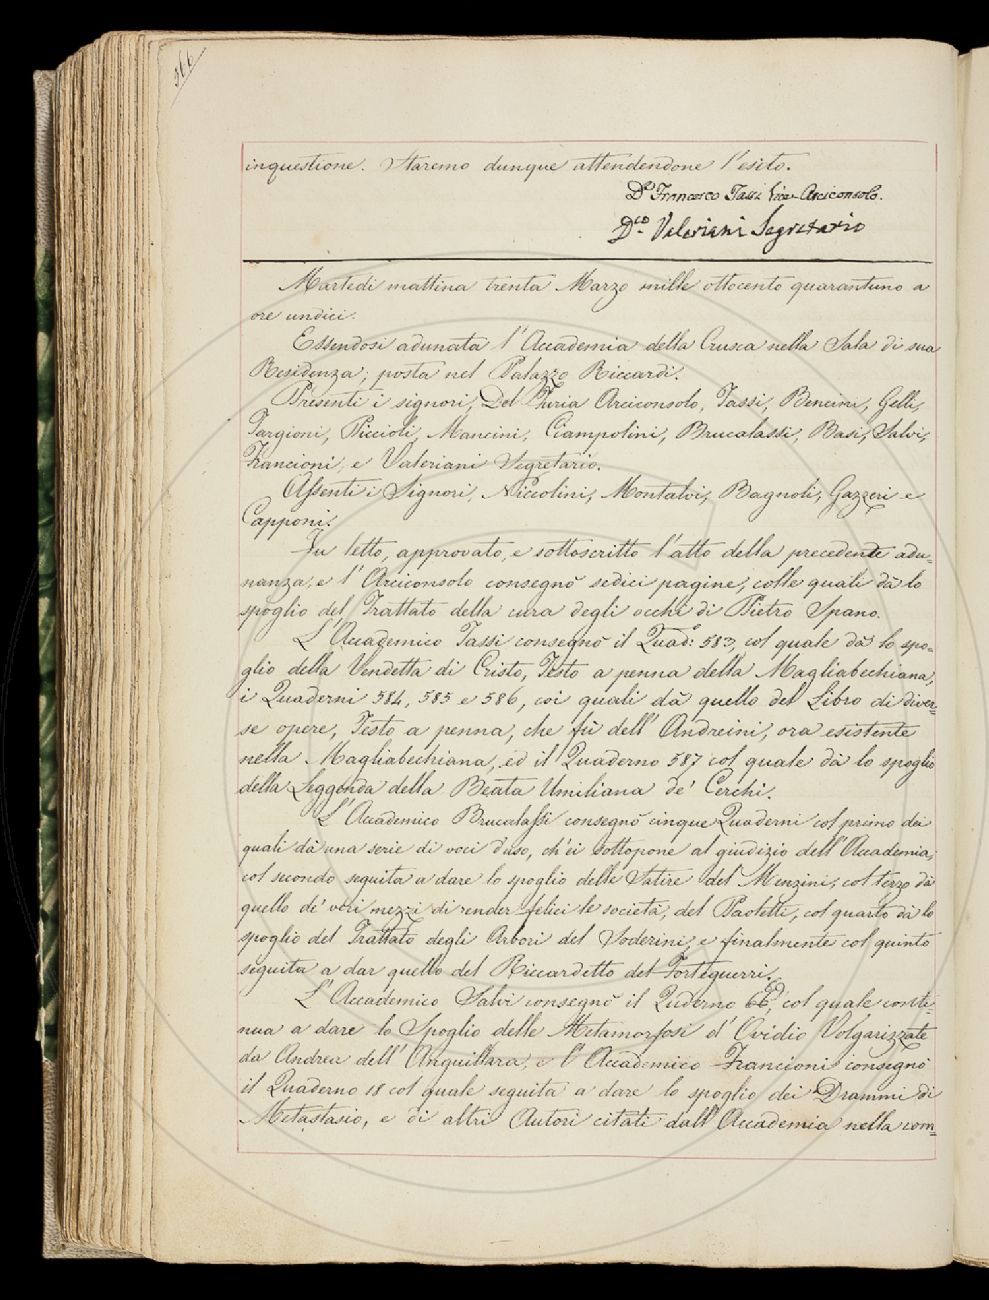 366
inquestione. Staremo dunque attendendone l'esito.
Dr Francesco Tassi Vice-Arciconsolo.
Dco Valeriani Segretario
Martedì mattina trenta Marzo mille ottocento quarantuno a
ore undici.
Essendosi adunata l'Accademia della Crusca nella Sala di sua
Residenza; posta nel Palazzo Riccardi.
Presenti i signori, Del Furia Arciconsolo, Tassi, Bencini, Gelli,
Targioni, Piccioli, Mancini, Ciampolini, Brucalassi, Basi, Salvi,
Francioni, e Valeriani Segretario.
Assenti i Signori, Niccolini, Montalvi, Bagnoli, Gazzeri e
Capponi.
Fu letto, approvato, e sottoscritto l'atto della precedente adu=
nanza, e l'Arciconsolo consegnò sedici pagine, colle quali dà lo
spoglio del Trattato della cura degli occhi di Pietro Spano.
L'Accademico Tassi consegnò il Quad: 583, col quale dà lo spo=
glio della Vendetta di Cristo, Testo a penna della Magliabechiana,
i Quaderni 584, 585 e 586, coi quali dà quello del Libro di diver=
se opere, Testo a penna, che fù dell'Andreini, ora esistente
nella Magliabechiana, ed il Quaderno 587 col quale dà lo spoglio
della Leggenda della Beata Umiliana de' Cerchi.
L'Accademico Brucalassi consegnò cinque Quaderni col primo dei
quali dà una serie di voci d'uso, ch'ei sottopone al giudizio dell'Accademia,
col secondo seguita a dare lo spoglio delle Satire del Menzini, col terzo dà
quello de' veri mezzi di render felici le società, del Paoletti, col quarto dà lo
spoglio del Trattato degli Arbori del Soderini, e finalmente col quinto
seguita a dar quello del Ricciardetto del Forteguerri.
L'Accademico Salvi consegnò il Quderno 66, col quale conti=
nua a dare lo Spoglio delle Metamorfosi d'Ovidio Volgarizzate
da Andrea dell'Anguillara, e l'Accademico Francioni consegnò
il Quaderno 18 col quale seguita a dare lo spoglio dei Drammi di
Metastasio, e di altri Autori citati dall'Accademia nella com=